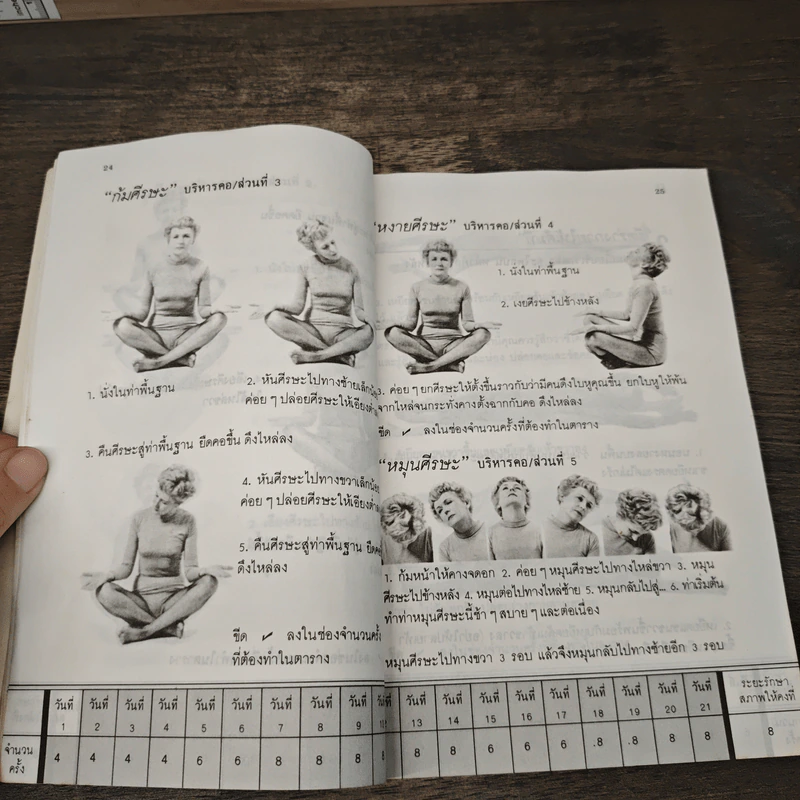 24
“ก้มศีรษะ” บริหารคอ/ส่วนที่ 3
1. นั่งในท่าพื้นฐาน
2. หันศีรษะไปทางซ้ายเล็กน้อย
ค่อย ๆ ปล่อยศีรษะให้เอียงต่ำ
3. คืนศีรษะสู่ท่าพื้นฐาน ยืดคอขึ้น ดึงไหล่ลง
4. หันศีรษะไปทางขวาเล็กน้อย
ค่อย ๆ ปล่อยศีรษะให้เอียงต่ำ
5. คืนศีรษะสู่ท่าพื้นฐาน ยืดคอ
ดึงไหล่ลง
ขีด ✓ ลงในช่องจำนวนครั้ง
ที่ต้องทำในตาราง
วันที่ 1 วันที่ 2 วันที่ 3 วันที่ 4 วันที่ 5 วันที่ 6 วันที่ 7 วันที่ 8 วันที่ 9
จำนวนครั้ง 4 4 4 4 6 6 8 8 8 8
25
“หงายศีรษะ” บริหารคอ/ส่วนที่ 4
1. นั่งในท่าพื้นฐาน
2. เงยศีรษะไปข้างหลัง
3. ค่อย ๆ ยกศีรษะให้ตั้งขึ้นราวกับว่ามีคนดึงใบหูคุณขึ้น ยกใบหูให้พ้น
จากไหล่จนกระทั่งคางตั้งฉากกับคอ ดึงไหล่ลง
ขีด ✓ ลงในช่องจำนวนครั้งที่ต้องทำในตาราง
“หมุนศีรษะ” บริหารคอ/ส่วนที่ 5
1. ก้มหน้าให้คางจดอก 2. ค่อย ๆ หมุนศีรษะไปทางไหล่ขวา 3. หมุน
ศีรษะไปข้างหลัง 4. หมุนต่อไปทางไหล่ซ้าย 5. หมุนกลับไปสู่... 6. ท่าเริ่มต้น
ทำท่าหมุนศีรษะนี้ช้า ๆ สบาย ๆ และต่อเนื่อง
หมุนศีรษะไปทางขวา 3 รอบ แล้วจึงหมุนกลับไปทางซ้ายอีก 3 รอบ
วันที่ 13 วันที่ 14 วันที่ 15 วันที่ 16 วันที่ 17 วันที่ 18 วันที่ 19 วันที่ 20 วันที่ 21 ระยะรักษาสภาพให้คงที่
8 8 6 6 6 8 8 8 8 8